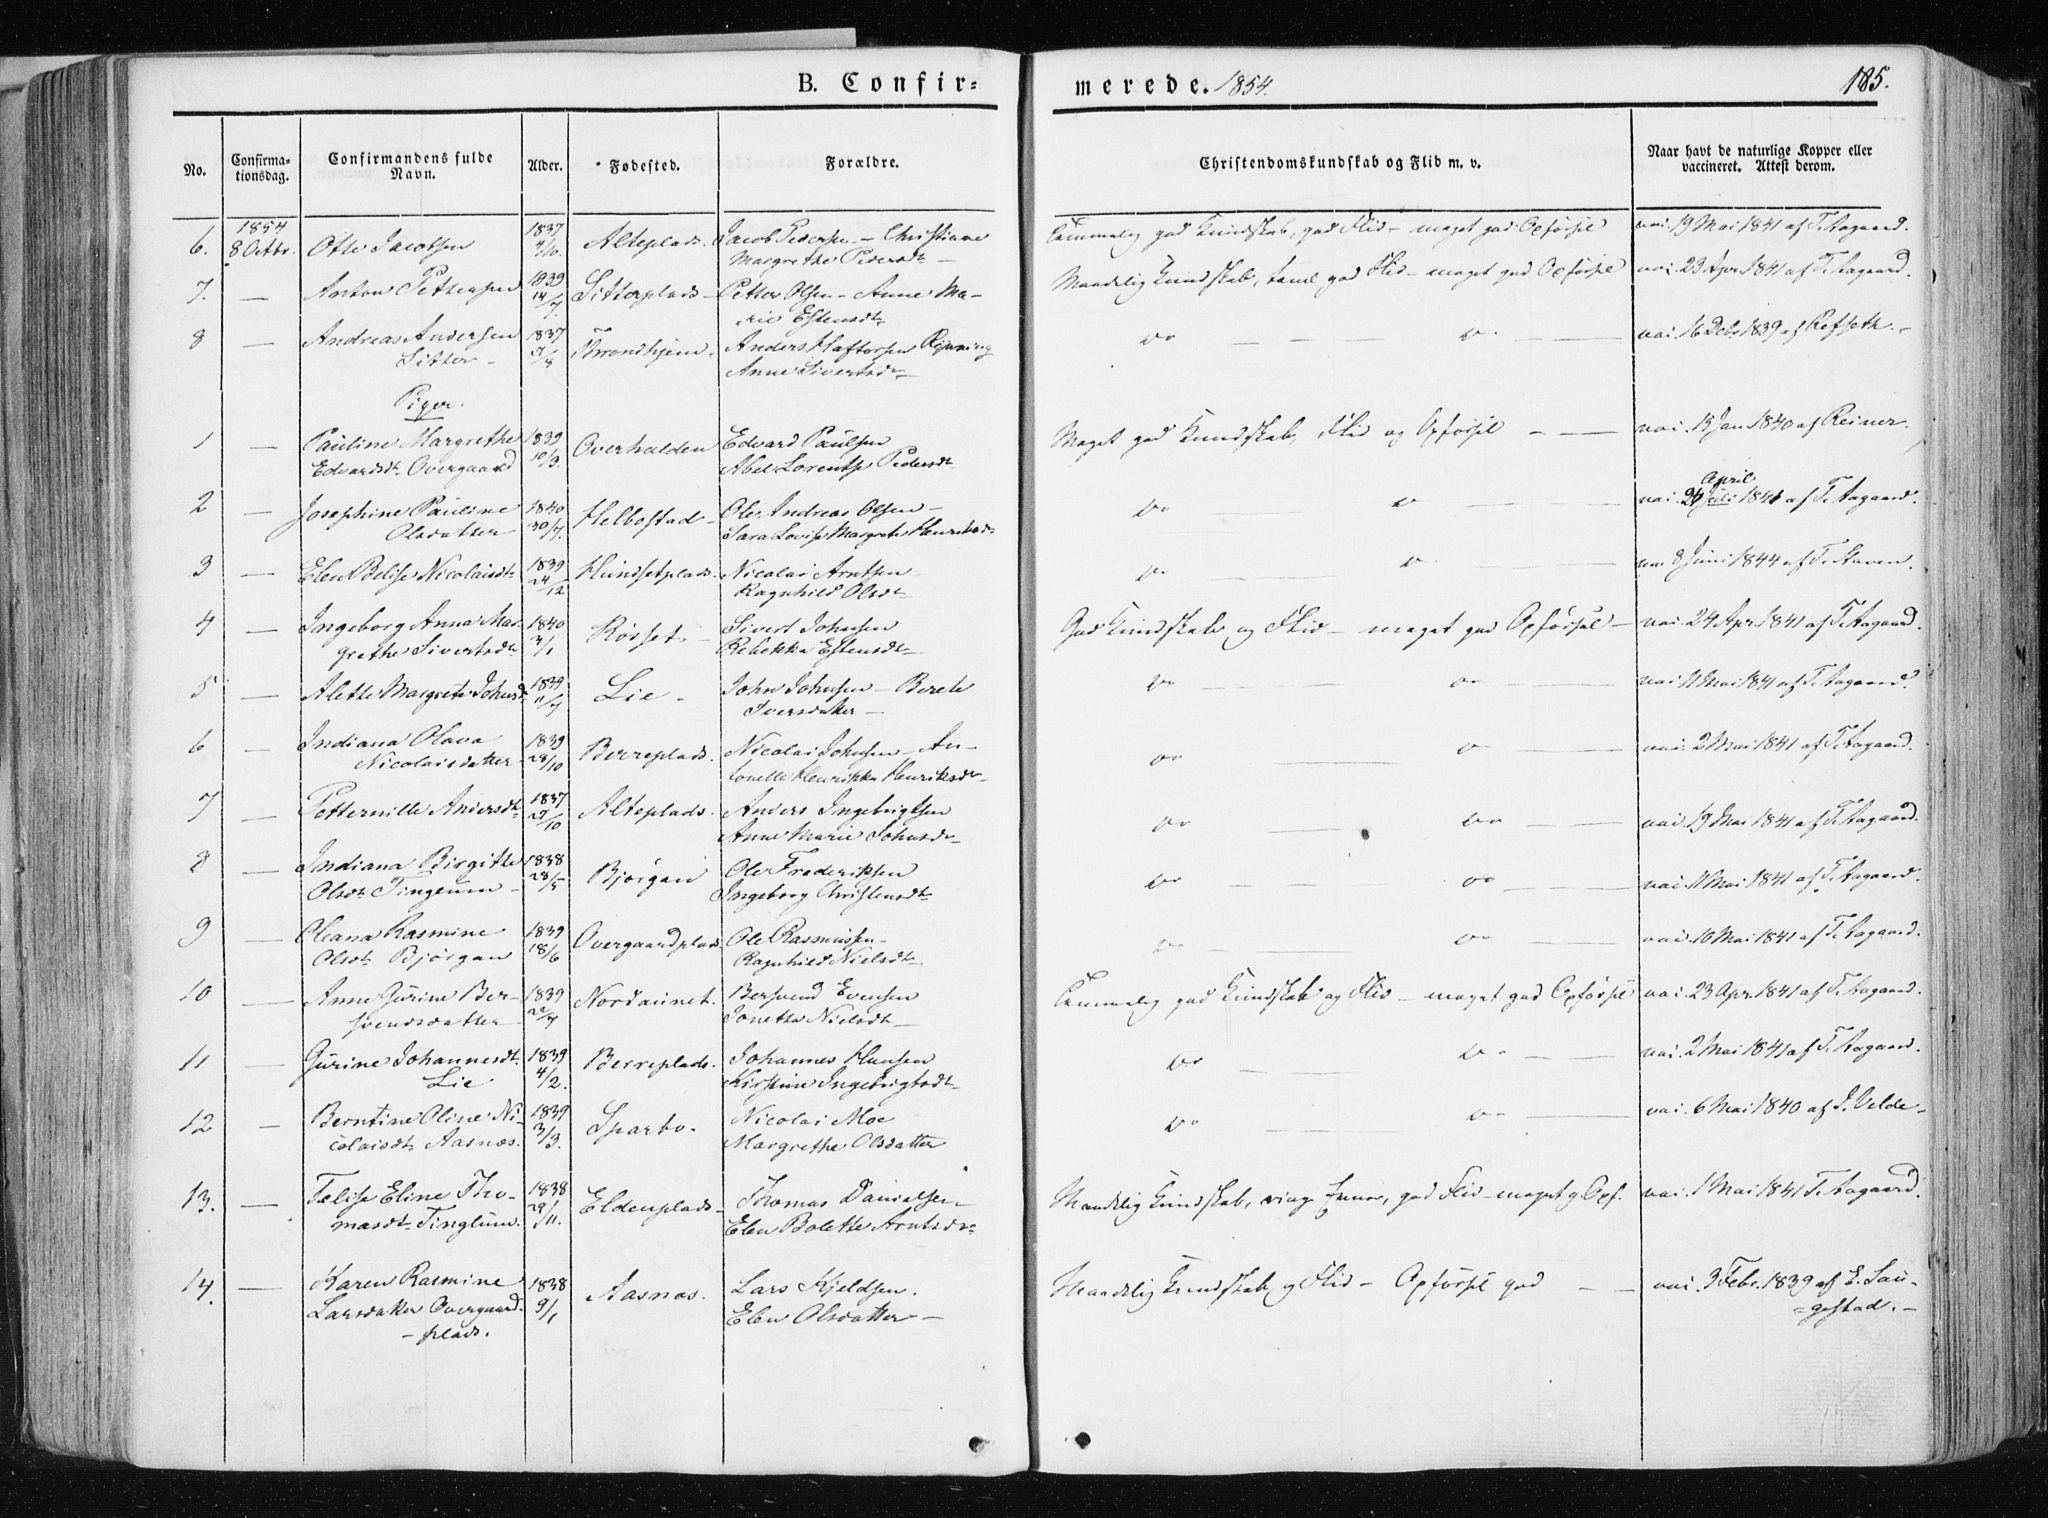 B. Confir=
merede. 1854.
185.
No.
Confirma-
tionsdag.
Confirmandens fulde
Navn.
Alder.
Fødested.
Forældre.
Christendomskundskab og Flid m. v.
Naar havt de naturlige Kopper eller
vaccineret. Attest derom.
1854 1837
6. 8 Octbr. Otto Jacobsen 4/10. Alteplads. Jacob Pedersen - Christiane Temmelig god Kundskab, god Flid - meget god Opførsel vac. 19 Mai 1841 af T. Aagaard.
Margrethe Pedersdt -
7. - Anton Pettersen 1839 Sitterplads - Petter Olsen - Anne Ma- Maadelig Kundskab, taml god Flid - meget god Opførsel vac. 23 Apr. 1841 af T. Aagaard.
14/7. rie Estensdt.
8 - Andreas Andersen 1837 Throndhjem. Anders Haftorsen Rønning do - - do - - vac. 16 Debr 1839 af Refseth. -
Sitter - 7/8 Anne Sivertsdr -
Piger.
1 - Pauline Margrethe 1839 Overhalden Edvard Paulsen Meget god Kundskab, Flid og Opførsel - - vac. 15 Jan 1840 af Reiner.
Edvardsdt Overgaard 10/3. Abel Lorentse Pedersdt
April
2 - Josephine Pauline 1840 Helbostad - Ole Andreas Olsen - do - do - vac. 24 Juli 1841 af T. Aagaard.
Olsdatter 30/7. Sara Lovise Margrete Henriksdr
3 - Elen Belise Nicolaisdt 1839 Hundsetplads. Nicolai Arntsen do - do - vac 8 Juni 1844 af T. Haven.
24/12 Ragnhild Olsdt
4 - Ingeborg Anna Mar- 1840 Røsset - Sivert Johnsen God Kundskab og Flid - meget god Opførsel - vac. 24 Apr. 1841 af T. Aagaard.
grethe Sivertsdt 3/1 Rebekka Estensdt
5 - Alette Margrete Johnsd. 1839 Lie - John Johnsen - Berete do - - do - vac. 11 Mai 1841 af T. Aagaard.
11/7 Iversdatter -
6 - Indiana Olava 1839 Berreplads. Nicolai Johnsen - An- do - do - vac. 2 Mai 1841 af T. Aagaard.
Nicolaisdatter 28/10 tonelle Henrikka Henriksdr
7 - Petternille Andersdt 1837 Alteplads. Anders Ingebrigtsen do - do - vac. 19 Mai 1841 af T. Aagaard.
27/10 Anne Marie Johnsdr
8 - Indiana Birgitte 1838 Bjørgan Ole Frederiksen do - - do - vac. 11 Mai 1841 af T. Aagaard.
Olsdt Tinglum - 28/5 Ingeborg Christensdt
9 - Oleana Rasmine 1839 Overgaardplads Ole Rasmussen - do - do - vac. 10 Mai 1841 af T. Aagaard.
Olsdt Bjørgan 18/6 Ragnhild Nielsdt
10 - Anne Gurine Ber- 1839 Nordaunet. Bersvend Evensen Temmelig god Kundskab og Flid - meget god Opførsel vac. 23 Apr. 1841 af T. Aagaard.
svendsdatter 22/7 Jonetta Nielsdt -
11 - Gurine Johannesdt 1839 Berreplads. Johannes Hansen do - do - vac. 2 Mai 1841 af T. Aagaard.
Lie 4/2. Kirstine Ingebrigtsdt
12 - Berntine Oline Ni- 1839 Sparbo. Nicolai Moe do - do - vac. 6 Mai 1840 af J. Velde -
colaisdt Aasnæs. 3/3. Margrethe Olsdatter
13. - Felise Eline Tho- 1838 Eldenplads - Thomas Danielsen Maadelig Kundskab, ringe Evner, god Flid - meget g. Opf. vac. 1 Mai 1841 T. Aagaard.
masdt Tinglum. 29/11. Elen Bolette Arntsdr
14. - Karen Rasmine 1838 Aasnæs. Lars Kjeldsen. Maadelig Kundskab og Flid - Opførsel god - - vac. 3 Febr. 1839 af E. Sau-
Larsdatter Overgaard- 9/1 Elen Olsdatter - =gestad. -
- plads.